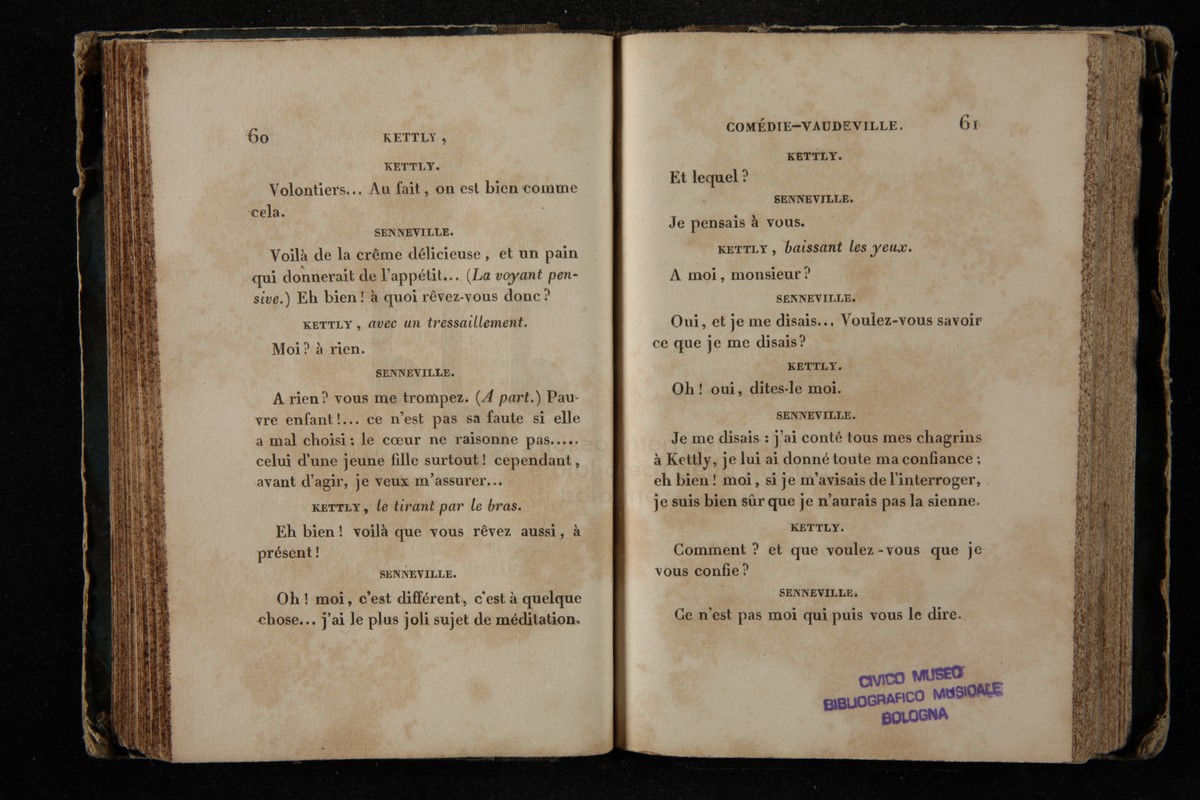 60 KETTLY,
KETTLY.
Volontiers... Au fait, on est bien comme
cela.
SENNEVILLE.
Voilà de la crême délicieuse, et un pain
qui donnerait de l'appétit... (La voyant pen-
sive.) Eh bien! à quoi rêvez-vous donc?
KETTLY, avec un tressaillement.
Moi? à rien.
SENNEVILLE.
A rien? vous me trompez. (A part.) Pau-
vre enfant!... ce n'est pas sa faute si elle
a mal choisi: le cœur ne raisonne pas.....
celui d'une jeune fille surtout! cependant,
avant d'agir, je veux m'assurer...
KETTLY, le tirant par le bras.
Eh bien! voilà que vous rêvez aussi, à
présent!
SENNEVILLE.
Oh! moi, c'est différent, c'est à quelque
chose... j'ai le plus joli sujet de méditation.
COMÉDIE-VAUDEVILLE. 61
KETTLY.
Et lequel?
SENNEVILLE.
Je pensais à vous.
KETTLY, baissant les yeux.
A moi, monsieur?
SENNEVILLE.
Oui, et je me disais... Voulez-vous savoir
ce que je me disais?
KETTLY.
Oh! oui, dites-le moi.
SENNEVILLE.
Je me disais : j'ai conté tous mes chagrins
à Kettly, je lui ai donné toute ma confiance;
eh bien! moi, si je m'avisais de l'interroger,
je suis bien sûr que je n'aurais pas la sienne.
KETTLY.
Comment? et que voulez-vous que je
vous confie?
SENNEVILLE.
Ce n'est pas moi qui puis vous le dire.
CIVICO MUSEO
BIBLIOGRAFICO MUSICALE
BOLOGNA